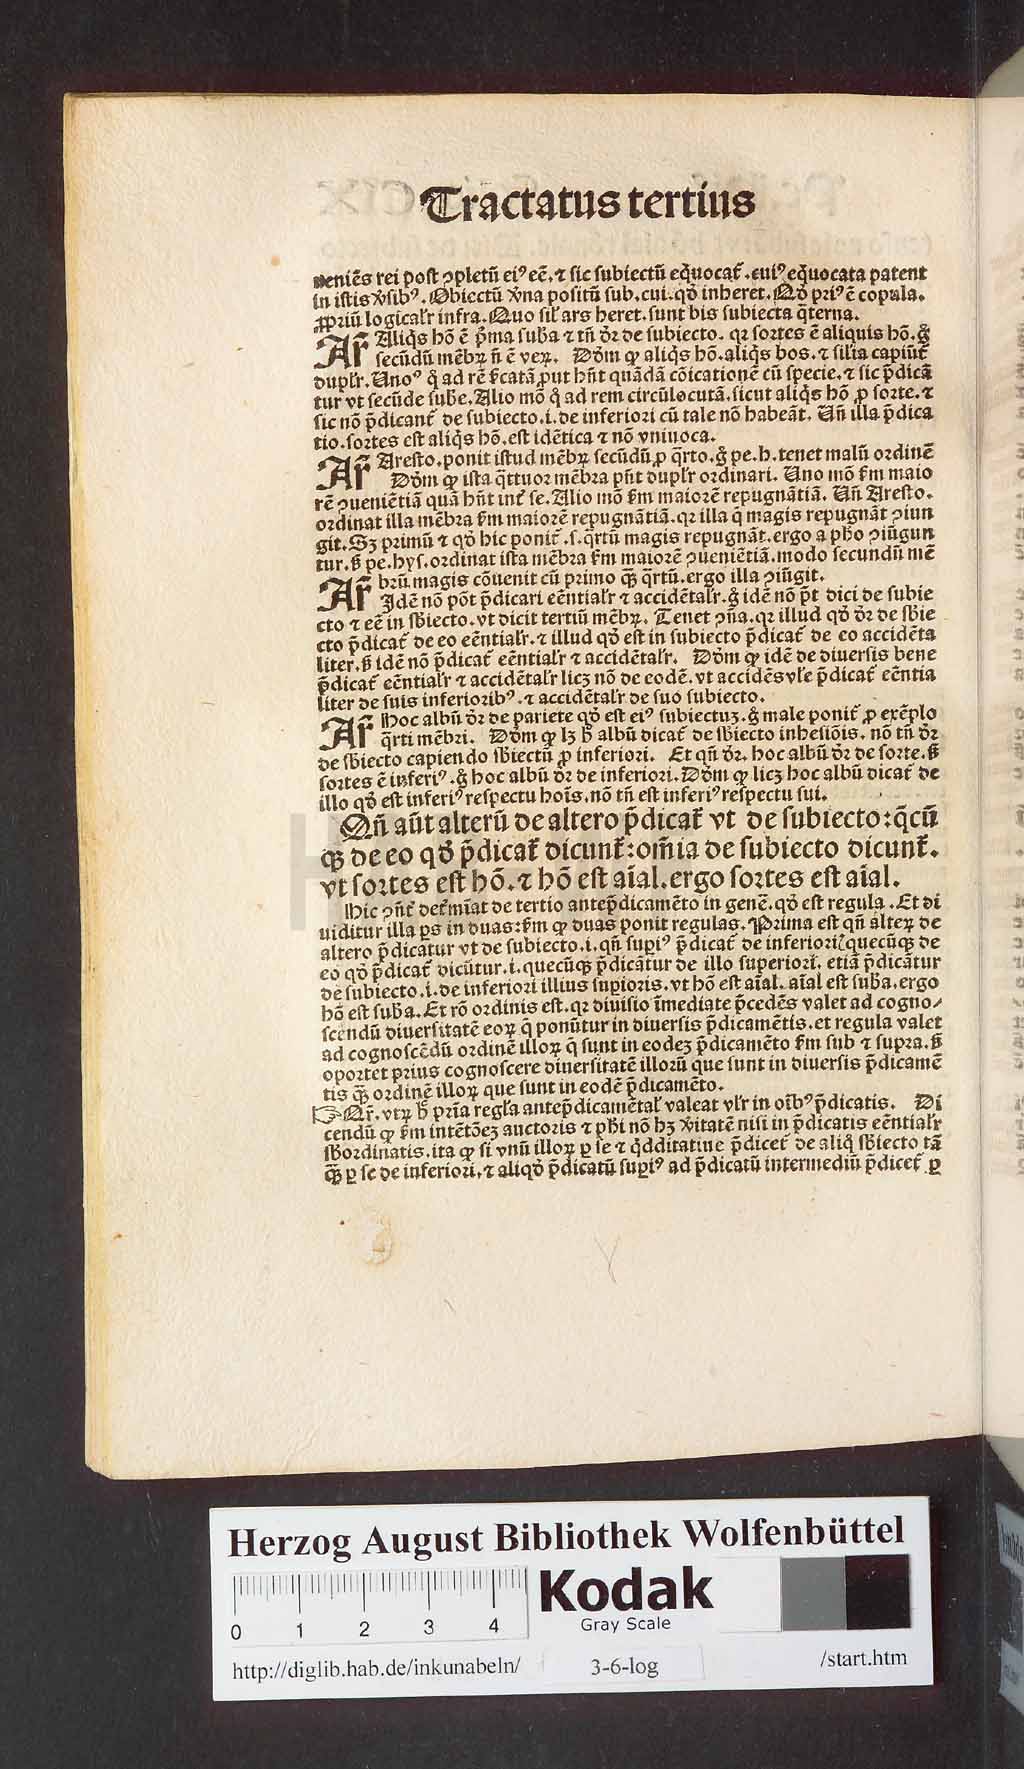 Tractatus tertius
veniēs rei post ꝯpletū eiꝰ eē. ⁊ sic subiectū eq̄uocat᷑. cuiꝰ eq̄uocata patent
in istis ṽsibꝰ. Obiectū ṽna positū sub. cui. qd̕ inheret. Qd̕ priꝰ ē copula.
ꝓpriū logical̕r infra. Quo sil̕ ars heret. sunt bis subiecta q̄terna.
Ar̄ Aliq̄s hō ē p̄ma suba ⁊ tn̄ dr̄ de subiecto. qr sortes ē aliquis hō. g̊
secūdū mēbꝝ n̄ ē veꝝ. Dōm ꝙ aliq̄s hō. aliq̄s bos. ⁊ silia capiūt᷑
dupl̕r. Unoꝰ q̊ ad rē s̄catā ꝓut hn̄t quādā cōicationē cū specie. ⁊ sic p̄dicā
tur vt secūde sube. Alio mō q̊ ad rem circūlocutā. sicut aliq̄s hō ꝓ sorte. ⁊
sic nō p̄dicant᷑ de subiecto .i. de inferiori cū tale nō habeāt. Un̄ illa p̄dica
tio. sortes est aliq̄s hō. est idētica ⁊ nō vniuoca.
Ar̄ Aresto. ponit istud mēbꝝ secūdū ꝓ q̄rto. g̊ pe. h. tenet malū ordinē
Dōm ꝙ ista q̄ttuor mēbra pn̄t dupl̕r ordinari. Uno mō ẜm maio
rē ꝯueniētiā quā hn̄t int᷑ se. Alio mō ẜm maiorē repugnātiā. Un̄ Aresto.
ordinat illa mēbra ẜm maiorē repugnātiā. qr illa q̄ magis repugnāt ꝯiun
git. Sꝫ primū ⁊ qd̕ hic ponit᷑ .s. q̄rtū magis repugnāt. ergo a pho ꝯiūgun
tur. ß pe. hys. ordinat ista mēbra ẜm maiorē ꝯueniētiā. modo secundū mē
brū magis cōuenit cū primo qꝫ q̄rtū. ergo illa ꝯiūgit.
Ar̄ Idē nō pōt p̄dicari eēntial̕r ⁊ accidētal̕r. g̊ idē nō p̄t dici de subie
cto ⁊ eē in sbiecto. vt dicit tertiū mēbꝝ. Tenet ꝯn̄a. qr illud qd̕ dr̄ de sbie
cto p̄dicat᷑ de eo eēntial̕r. ⁊ illud qd̕ est in subiecto p̄dicat᷑ de eo accidēta
liter. ß idē nō p̄dicat᷑ eēntial̕r ⁊ accidētal̕r. Dōm ꝙ idē de diuersis bene
p̄dicat᷑ eēntial̕r ⁊ accidētal̕r licꝫ nō de eodē. vt accidēs vl̕e p̄dicat᷑ eēntia
liter de suis inferioribꝰ. ⁊ accidētal̕r de suo subiecto.
Ar̄ Hoc albū dr̄ de pariete qd̕ est eiꝰ subiectuꝫ. g̊ male ponit᷑ ꝓ exēplo
q̄rti mēbri. Dōm ꝙ lꝫ ħ albū dicat᷑ de sbiecto inhesiōis. nō tn̄ dr̄
de sbiecto capiendo sbiectū ꝓ inferiori. Et qn̄ dr̄. hoc albū dr̄ de sorte. ß
sortes ē inferiꝰ. g̊ hoc albū dr̄ de inferiori. Dōm ꝙ licꝫ hoc albū dicat᷑ de
illo qd̕ est inferiꝰ respectu hoīs. nō tn̄ est inferiꝰ respectu sui.
Qn̄ aūt alterū de altero p̄dicat᷑ vt de subiecto: q̄cū
qꝫ de eo qd̕ p̄dicat᷑ dicunt᷑: om̄ia de subiecto dicunt᷑.
vt sortes est hō. ⁊ hō est aīal. ergo sortes est aīal.
Hic ꝯn̄t᷑ det᷑mīat de tertio antep̄dicamēto in genē. qd̕ est regula. Et di
uiditur illa ꝑs in duas: ẜm ꝙ duas ponit regulas. Prima est qn̄ alteꝝ de
altero p̄dicatur vt de subiecto .i. qn̄ supiꝰ p̄dicat᷑ de inferiori/ quecūqꝫ de
eo qd̕ p̄dicat᷑ dicūtur .i. quecūqꝫ p̄dicātur de illo superiori. etiā p̄dicātur
de subiecto .i. de inferiori illius supioris. vt hō est aīal. aīal est suba. ergo
hō est suba. Et rō ordinis est. qr diuisio īmediate p̄cedēs valet ad cogno/
scendū diuersitatē eoꝝ q̄ ponūtur in diuersis p̄dicamētis. et regula valet
ad cognoscēdū ordinē illoꝝ q̄ sunt in eodeꝫ p̄dicamēto ẜm sub ⁊ supra. ß
oportet prius cognoscere diuersitatē illorū que sunt in diuersis p̄dicamē
tis qꝫ ordinē illoꝝ que sunt in eodē p̄dicamēto.
☞ Qr̄. vtꝝ ħ pria regl̕a antep̄dicamētal̕ valeat vl̕r in oībꝰ p̄dicatis. Di
cendū ꝙ ẜm intētōeꝫ auctoris ⁊ phi nō hꝫ ṽitatē nisi in p̄dicatis eēntial̕r
sbordinatis. ita ꝙ si vnū illoꝝ ꝑ se ⁊ q̄dditatiue p̄dicet᷑ de aliq̊ sbiecto tā
qꝫ ꝑ se de inferiori. ⁊ aliqd̕ p̄dicatū supiꝰ ad p̄dicatū intermediū p̄dicet᷑ ꝑ
Herzog August Bibliothek Wolfenbüttel
0 1 2 3 4
Kodak
Gray Scale
http://diglib.hab.de/inkunabeln/ 3-6-log /start.htm